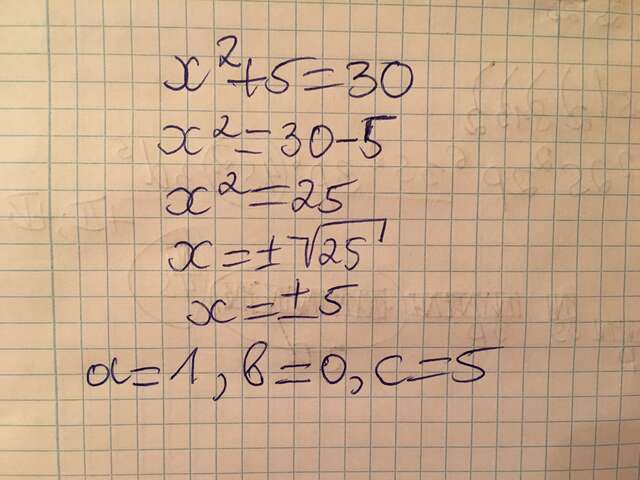 x²+5=30
x²=30-5
x²=25
x=±√25
x=±5
a=1, b=0, c=5